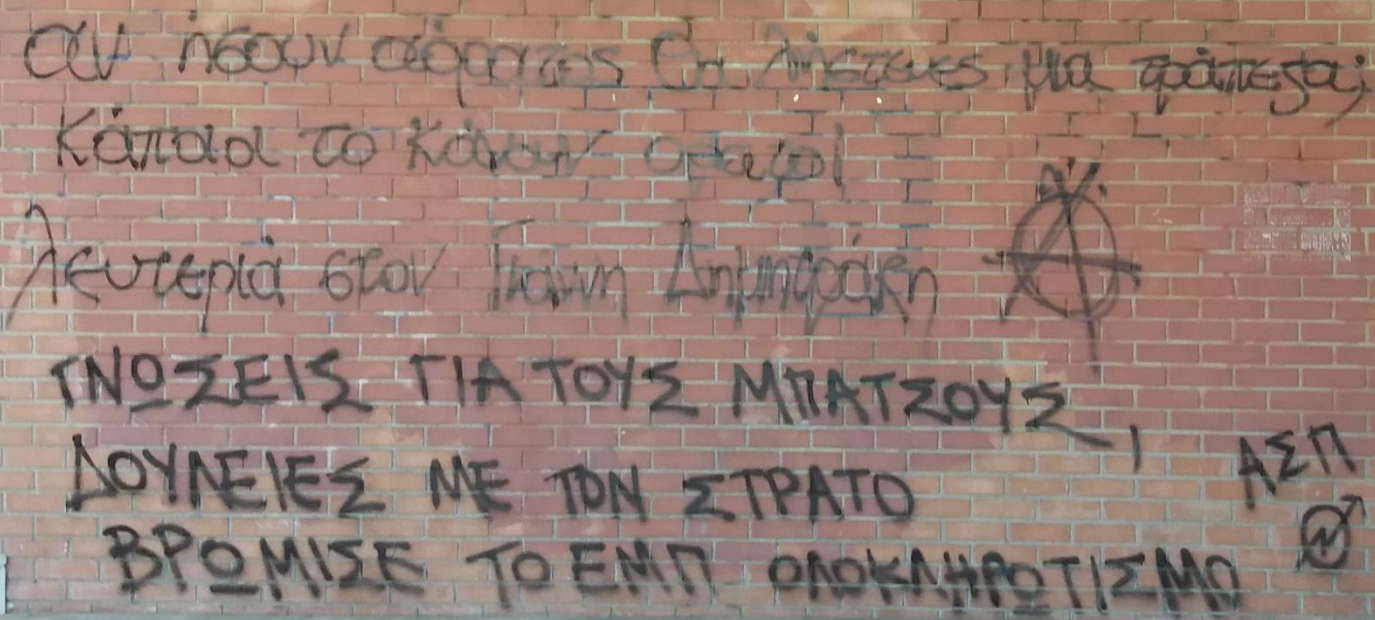 αν ήσουν αόρατος θα λήστευες μια τράπεζα;
Κάποιοι το κάνουν ορατοί
λευτεριά στον Γιάννη Δημητράκη
ΓΝΩΣΕΙΣ ΓΙΑ ΤΟΥΣ ΜΠΑΤΣΟΥΣ,
ΔΟΥΛΕΙΕΣ ΜΕ ΤΟΝ ΣΤΡΑΤΟ
ΒΡΩΜΙΣΕ ΤΟ ΕΜΠ ΟΛΟΚΛΗΡΩΤΙΣΜΟ
ΑΣΠ